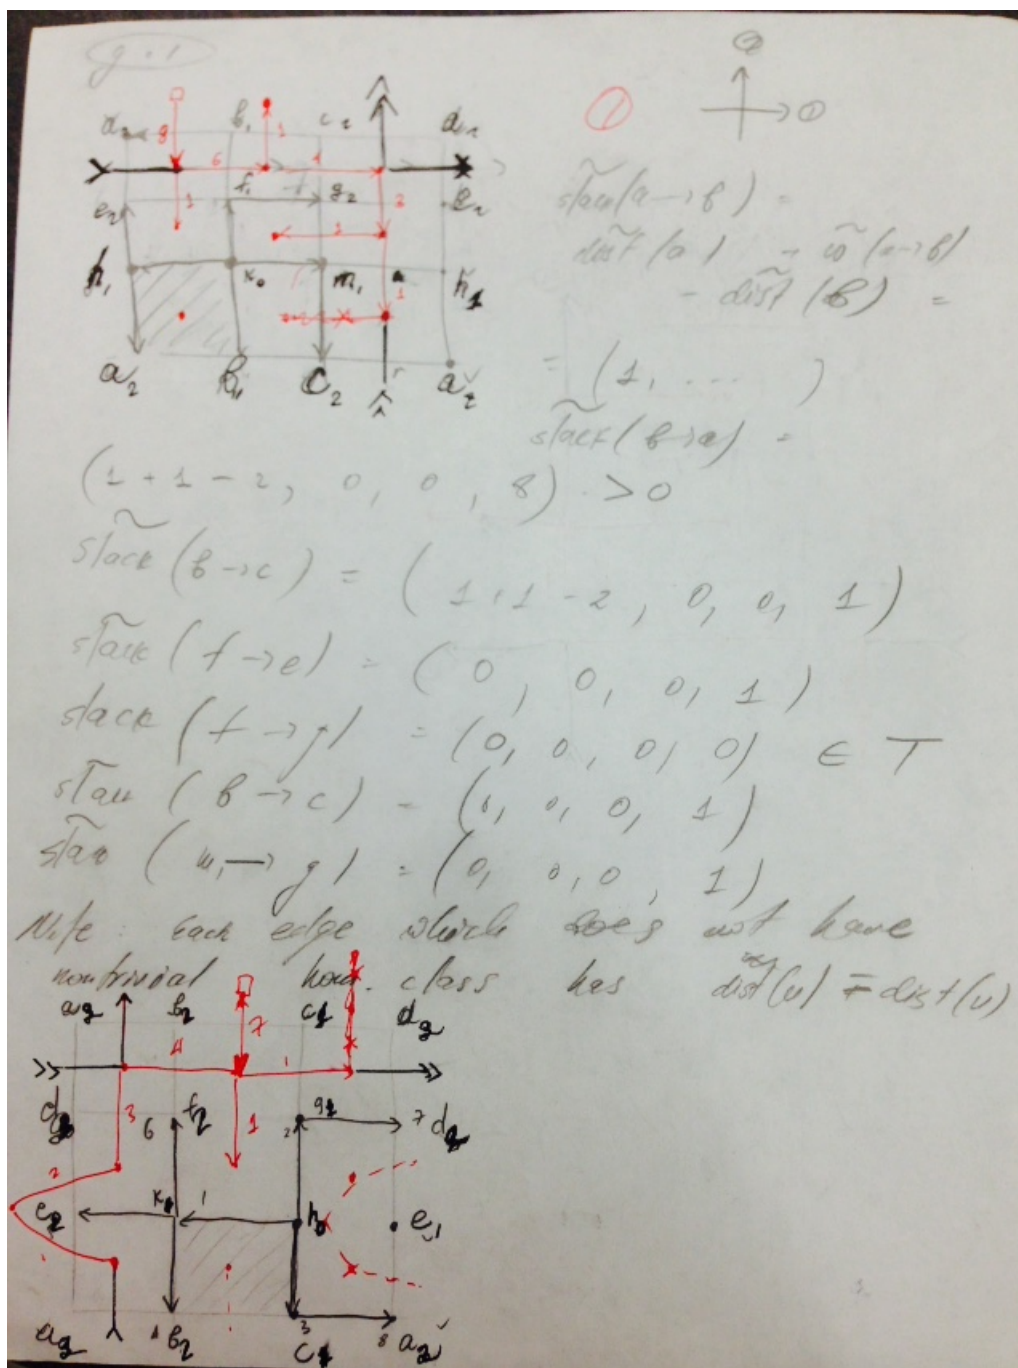 g = 1
②
① → ①
d₂ 8 b₁ 1 c₂ d₂
6 1
e₂ 1 f₁ g₂ 2 e₂
1
h₁ k₀ m₁ 1 h₁
a₂ b₁ c₂ a₂
slack(a→b) =
dist(a) - ω(a→b)
- dist(b) =
= (1, ... )
slack(b→a) =
(1+1-2, 0, 0, 8) > 0
slack(b→c) = (1+1-2, 0, 0, 1)
slack(f→e) = (0, 0, 0, 1)
slack(f→g) = (0, 0, 0, 0) ∈ T
slack(b→c) = (0, 0, 0, 1)
slack(m₁→g) = (0, 0, 0, 1)
Note: each edge which does not have
nontrivial hom. class has dist(u) = dist(v)
a₂ b₂ 7 c₁ d₂
4 1
d₂ 3 6 f₂ 1 2 g₁ 7 d₂
2
e₂ k₁ 1 h₀ e₁
a₂ b₂ 3 c₁ 8 a₂